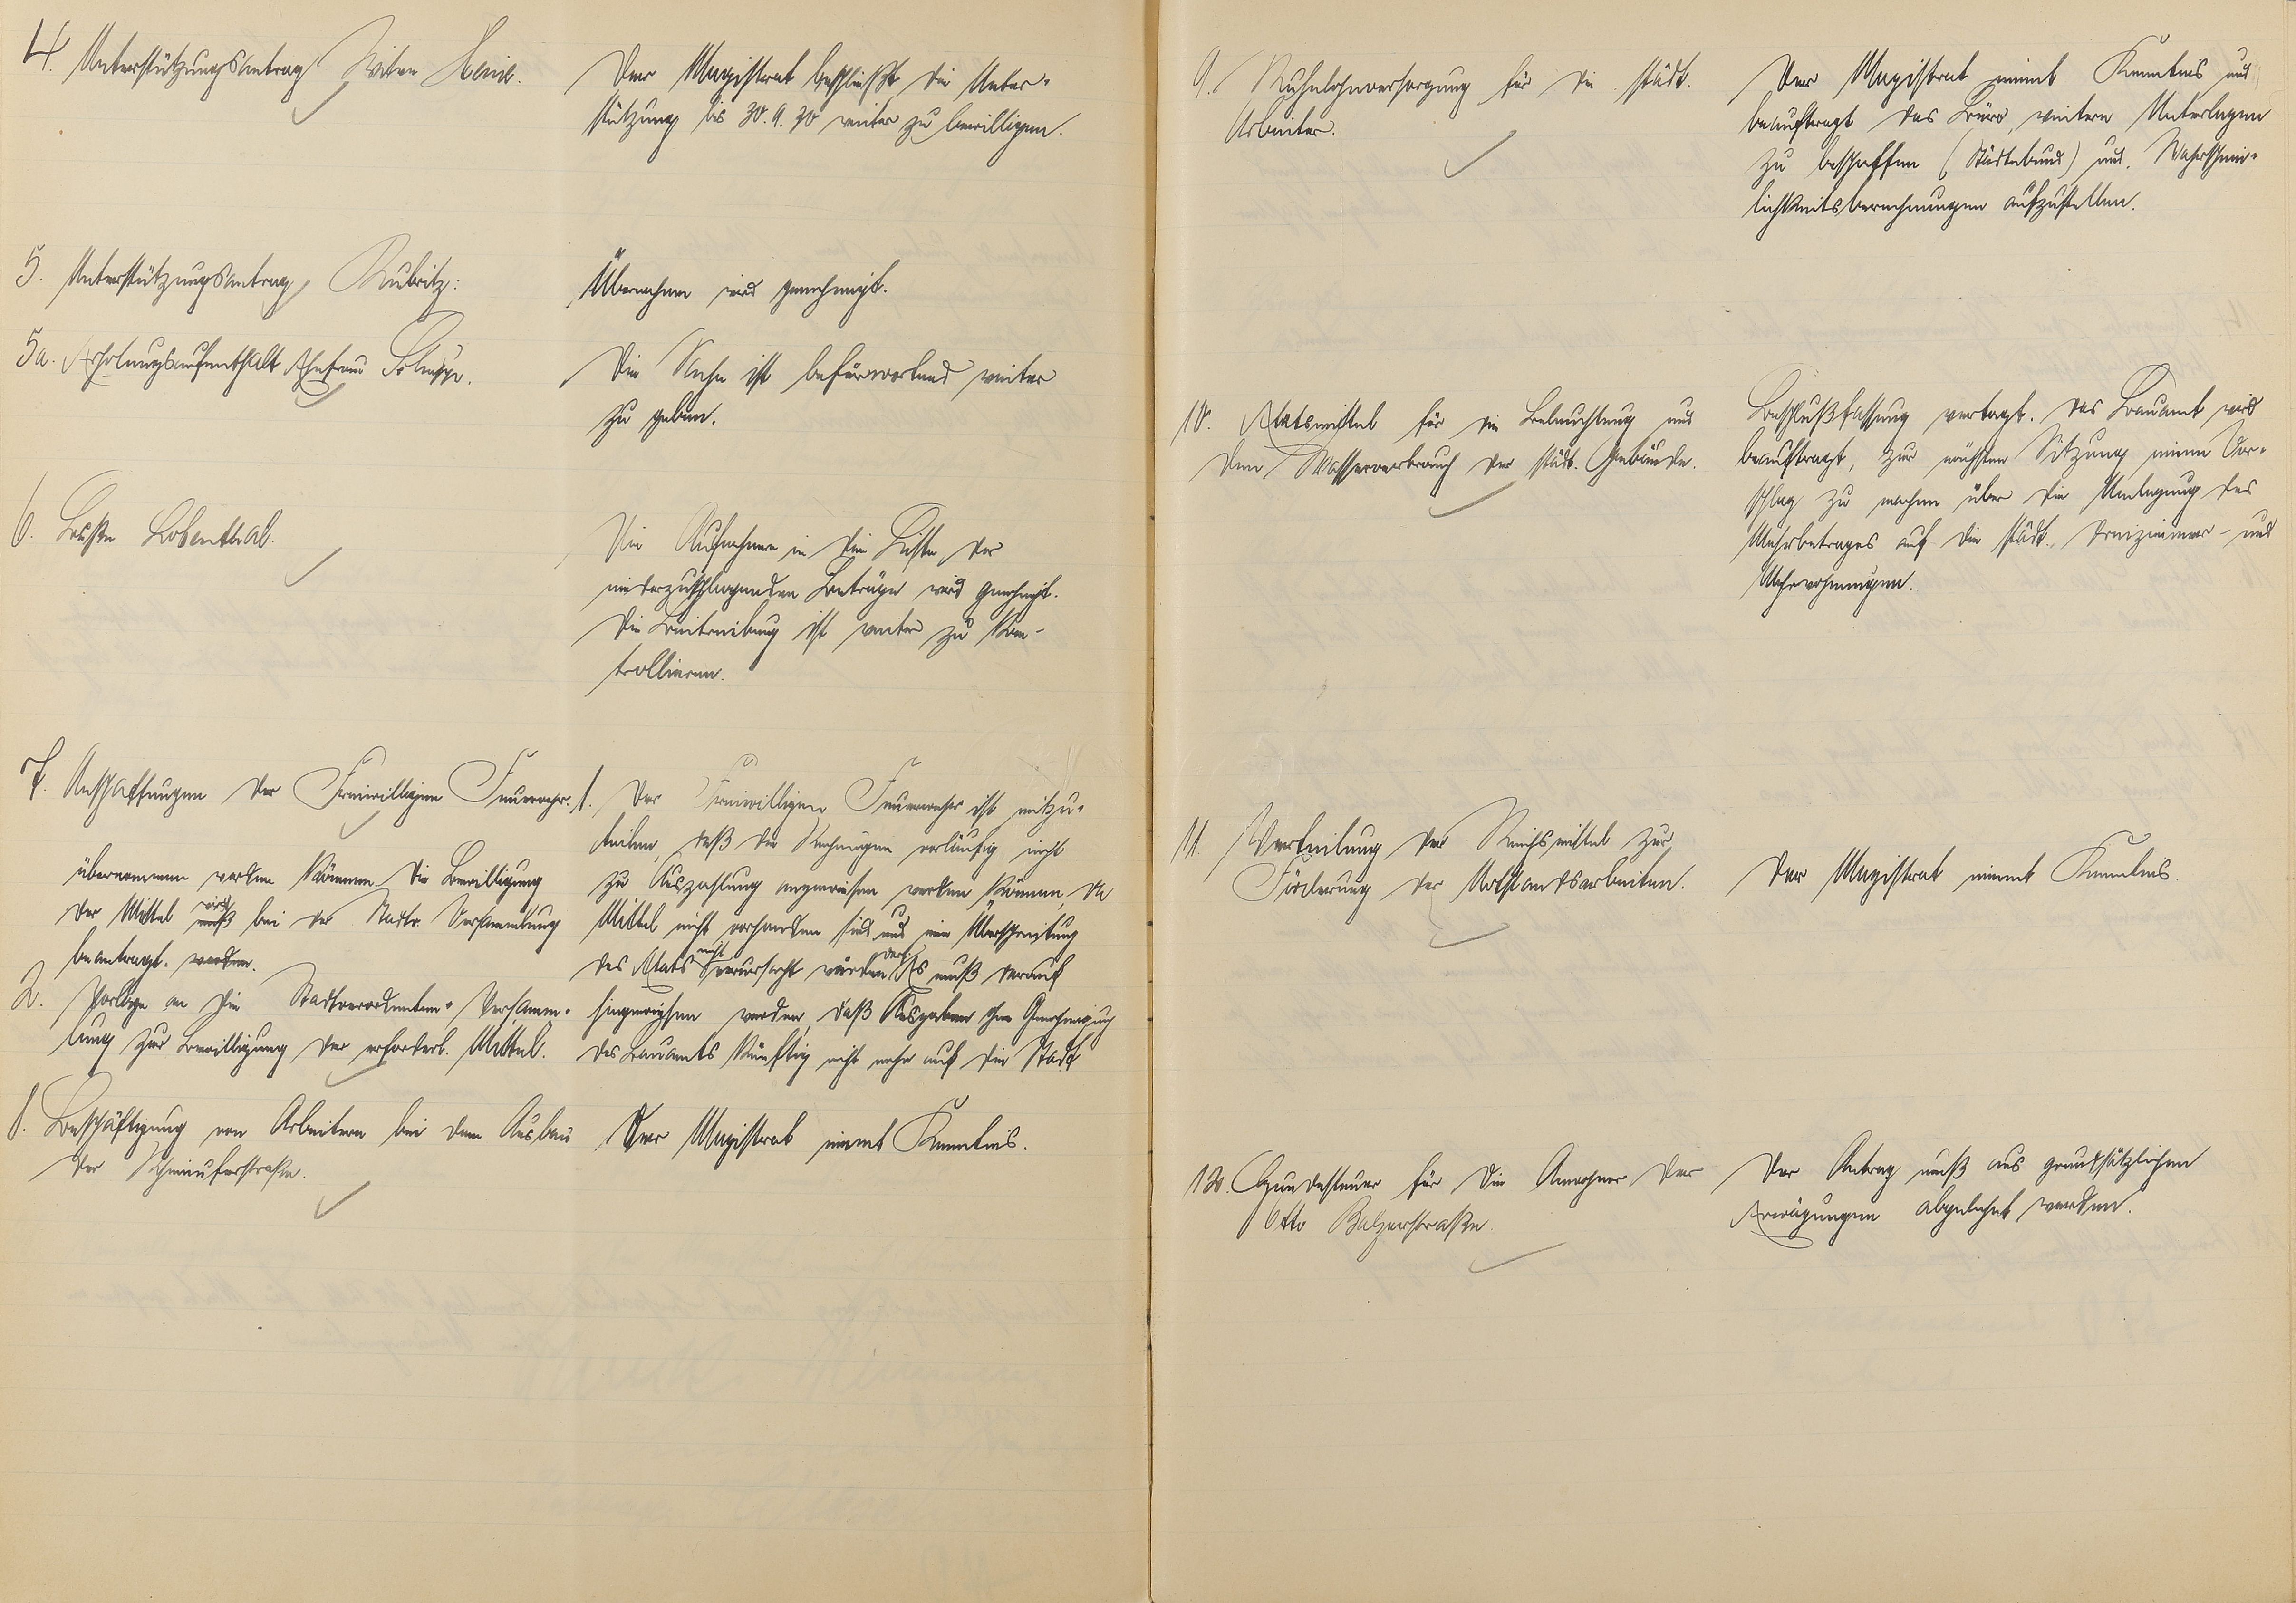 4. Unterstützungsantrag Witwe Henie.
Der Magistrat beschließt die Unter-
stützung bis 30.9.30 weiter zu bewilligen.
5. Unterstützungsantrag Kubritz:
Übernahme wird genehmigt.
5a. Erholungsaufenthalt Ehefrau
Die Sache ist befürwortend weiter
zu geben.
6. Lobenthal.
Die Aufnahme in die Liste der
niederzuschlagenden Beträge wird genehmigt.
Die Beitreibung ist weiter zu kon-
trollieren.
7. Anschaffungen der Freiwilligen Feuerwehr.
1. Der Freiwilligen Feuerwehr ist mitzu-
teilen, daß die Rechnungen vorläufig nicht
zu Auszahlung angewiesen werden können, da
Mittel nicht vorhanden sind und eine Überschreitung
des Etats nicht verursacht werden darf. Es muß darauf
hingewiesen werden, daß Ausgaben ohne Genehmigung
des Bauamts künftig nicht mehr auf die Stadt
übernommen werden können. Die Bewilligung
der Mittel muß wird bei der Stadtv. Versammlung
beantragt. werden.
2. Vorlage an die Stadtverordneten-Versamm-
lung zur Bewilligung der erforderl. Mittel.
8. Beschäftigung von Arbeitern bei dem Ausbau
der Rheinuferstraße.
Der Magistrat nimmt Kenntnis.
9. Ruhelohnversorgung für die städt.
Arbeiter.
Der Magistrat nimmt Kenntnis und
beauftragt das Büro, weitere Unterlagen
zu beschaffen (Städtebund) und Wahrschein-
lichkeitsberechnungen aufzustellen.
10. Etatsmittel für die Beleuchtung und
den Wasserverbrauch der städt. Gebäude.
Beschlußfassung vertagt. Das Bauamt wird
beauftragt, zur nächsten Sitzung einen Vor-
schlag zu machen über die Umlegung des
Mehrbetrages auf die städt. Dreizimmer- und
Mehrwohnungen.
11. Verteilung der Reichsmittel zur
Förderung der Notstandsarbeiten.
Der Magistrat nimmt Kenntnis.
12. Hundesteuer für die Anwohner der
Otto Balzerstraße.
Der Antrag muß aus grundsätzlichen
Erwägungen abgelehnt werden.